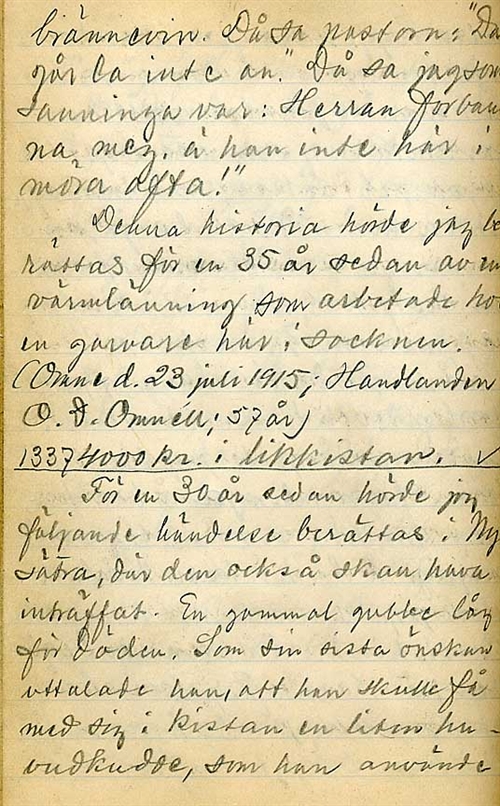 brännevin. Då sa pastorn: "Da
går la inte an." Då sa jag som
sanninga var: Herran förban
na mej, å han inte här i
möra atta!"
Denna historia hörde jag be
rättas för en 35 år sedan av en
värmlänning som arbetade ho
en garvare här i socknen.
(Omne d. 23 juli 1915; Handlanden
O. D. Omnell; 57 år)
1337 4000 kr. i likkistan. ✓
För en 30 år sedan hörde jag
följande händelse berättas i Ny
sätra, där den också skau hava
inträffat. En gammal gubbe låg
för döden. Som sin sista önskan
uttalade han, att han skulle få
med sig i kistan en liten hu-
vudkudde, som han använde